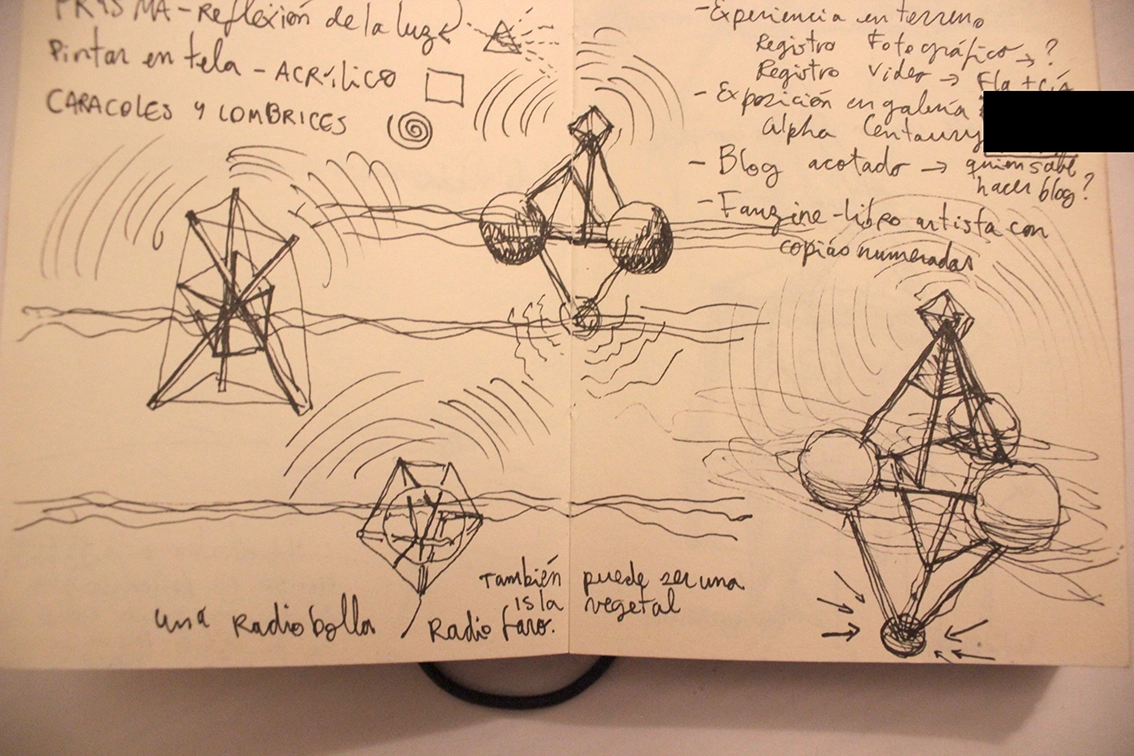 PRYSMA - Reflexión de la luz
Pintar en tela - ACRÍLICO
CARACOLES Y LOMBRICES
- Experiencia en terreno
Registro Fotográfico → ?
Registro video →
- Exposición en galería
Alpha Centaury
- Blog acotado → quien sabe
hacer blog?
- Fanzine - libro artista con
copias numeradas
una Radiobolla
Radio faro.
También puede ser una
isla vegetal